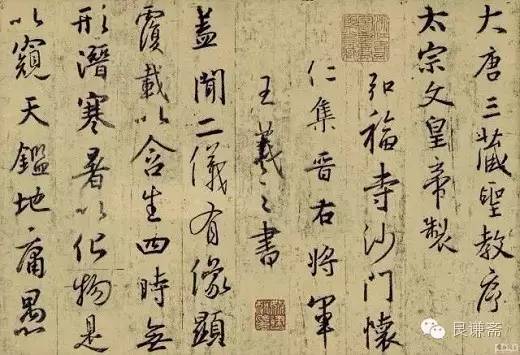 大唐三藏聖教序
太宗文皇帝製
弘福寺沙門懷
仁集晉右將軍
王羲之書
蓋聞二儀有像顯
覆載以含生四時無
形潛寒暑以化物是
以窺天鑑地庸愚
艮谦斋